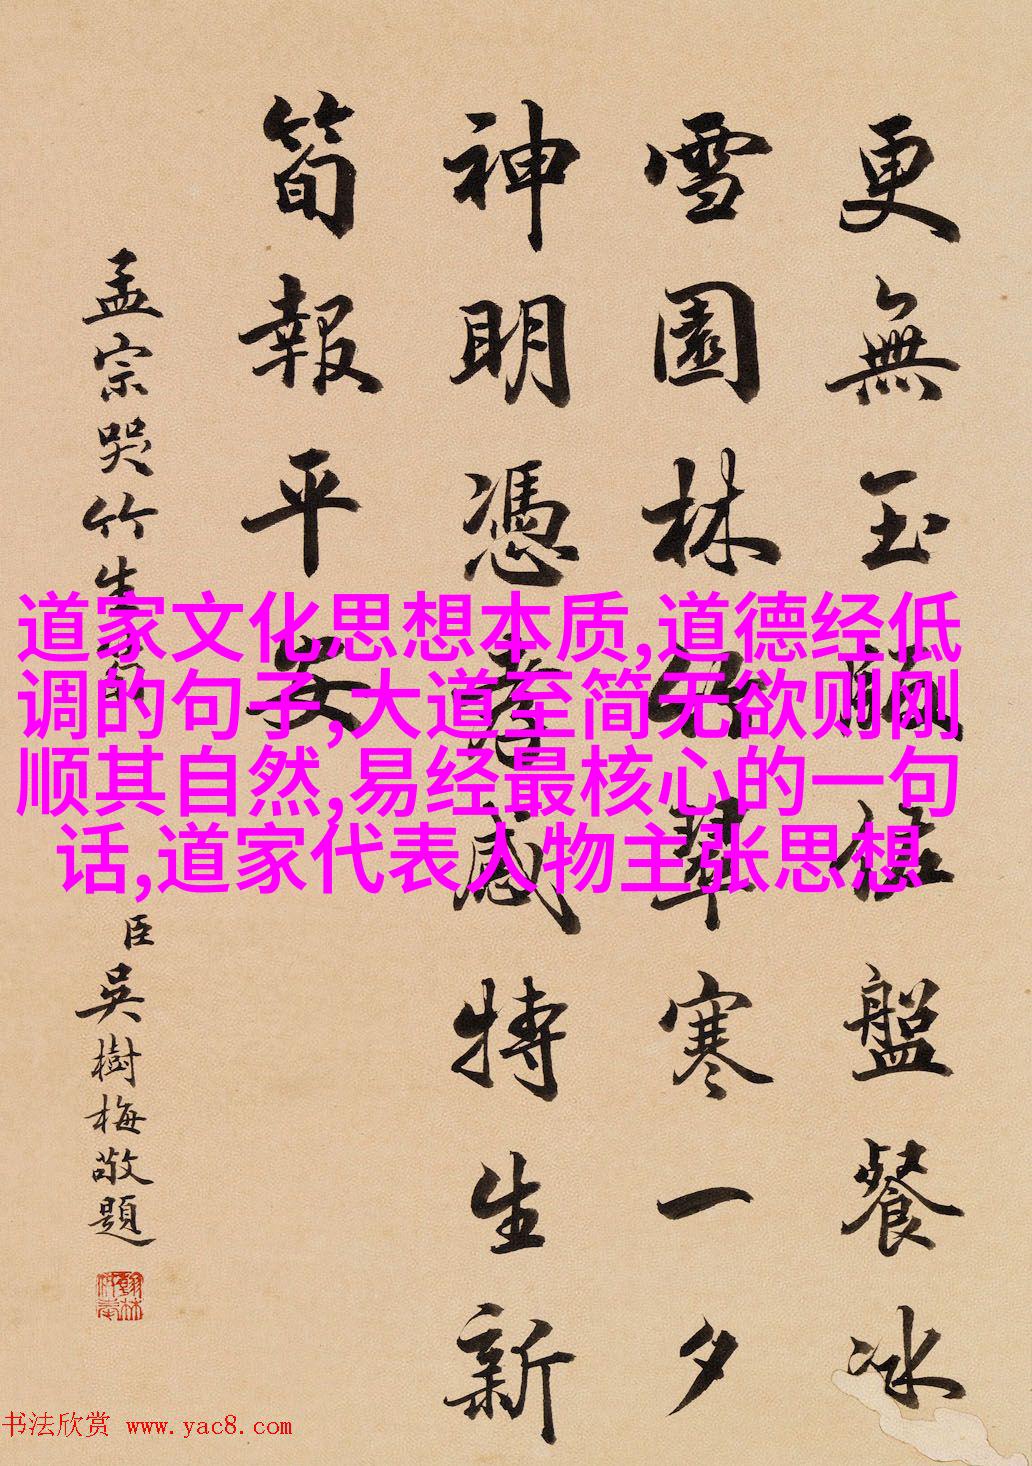 更無玉佐盤餐冰
雪園林翠寒一夕
神明憑孝感特生新
筍報平安
孟宗哭竹生
臣吳樹梅敬題
道家文化思想本质,道德经低
调的句子,大道至简无欲则刚
顺其自然,易经最核心的一句
话,道家代表人物主张思想
书法欣赏 www.yac8.com